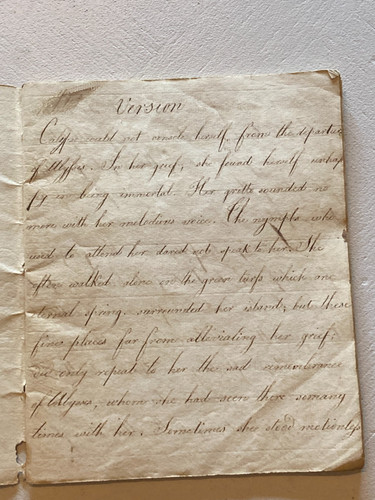 Version
Calypso could not console herself, from the departure
of Ulysses. In her grief, she found herself unhap
py in being immortal. Her grotto sounded no
more with her melodious voice. The nymphs who
used to attend her dared not speak to her. She
often walked alone on the green turfs which an e
ternal spring surrounded her island; but these
fine places far from alleviating her grief;
did only repeat to her the sad remembrance
of Ulysses, whom she had seen there so many
times with her. Sometimes she stood motionless